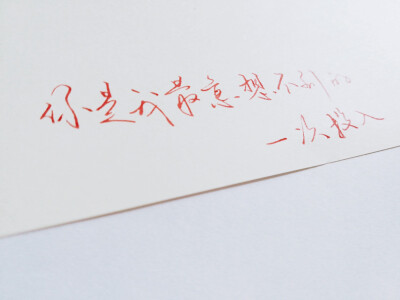 你是我最意想不到的
一次投入